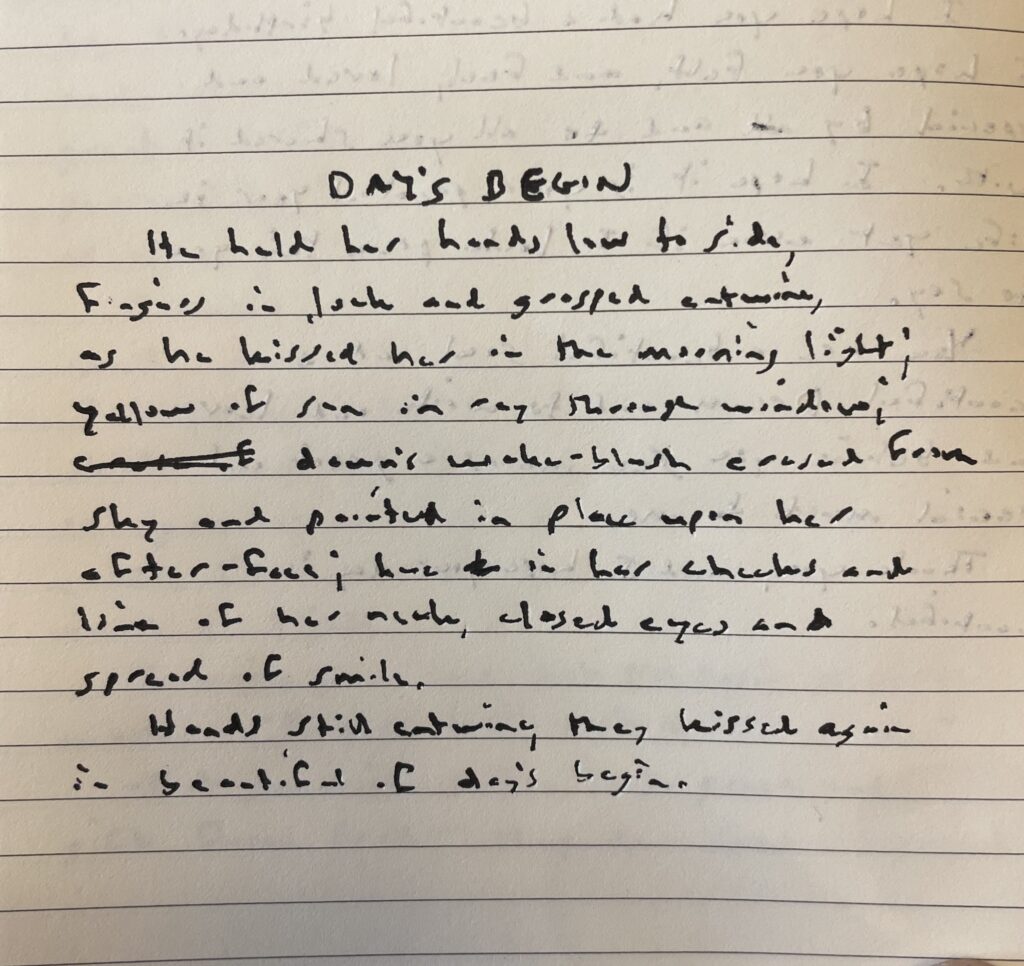 DAY'S BEGIN
He held her hands low to side,
Fingers in lock and grasped entwine,
as he kissed her in the morning light;
yellow of sun in ray through window;
dawn's wake-blush erased from
sky and painted in place upon her
after-face; hue in her cheeks and
line of her neck, closed eyes and
spread of smile.
Hands still entwine, they kissed again
in beautiful of day's begin.